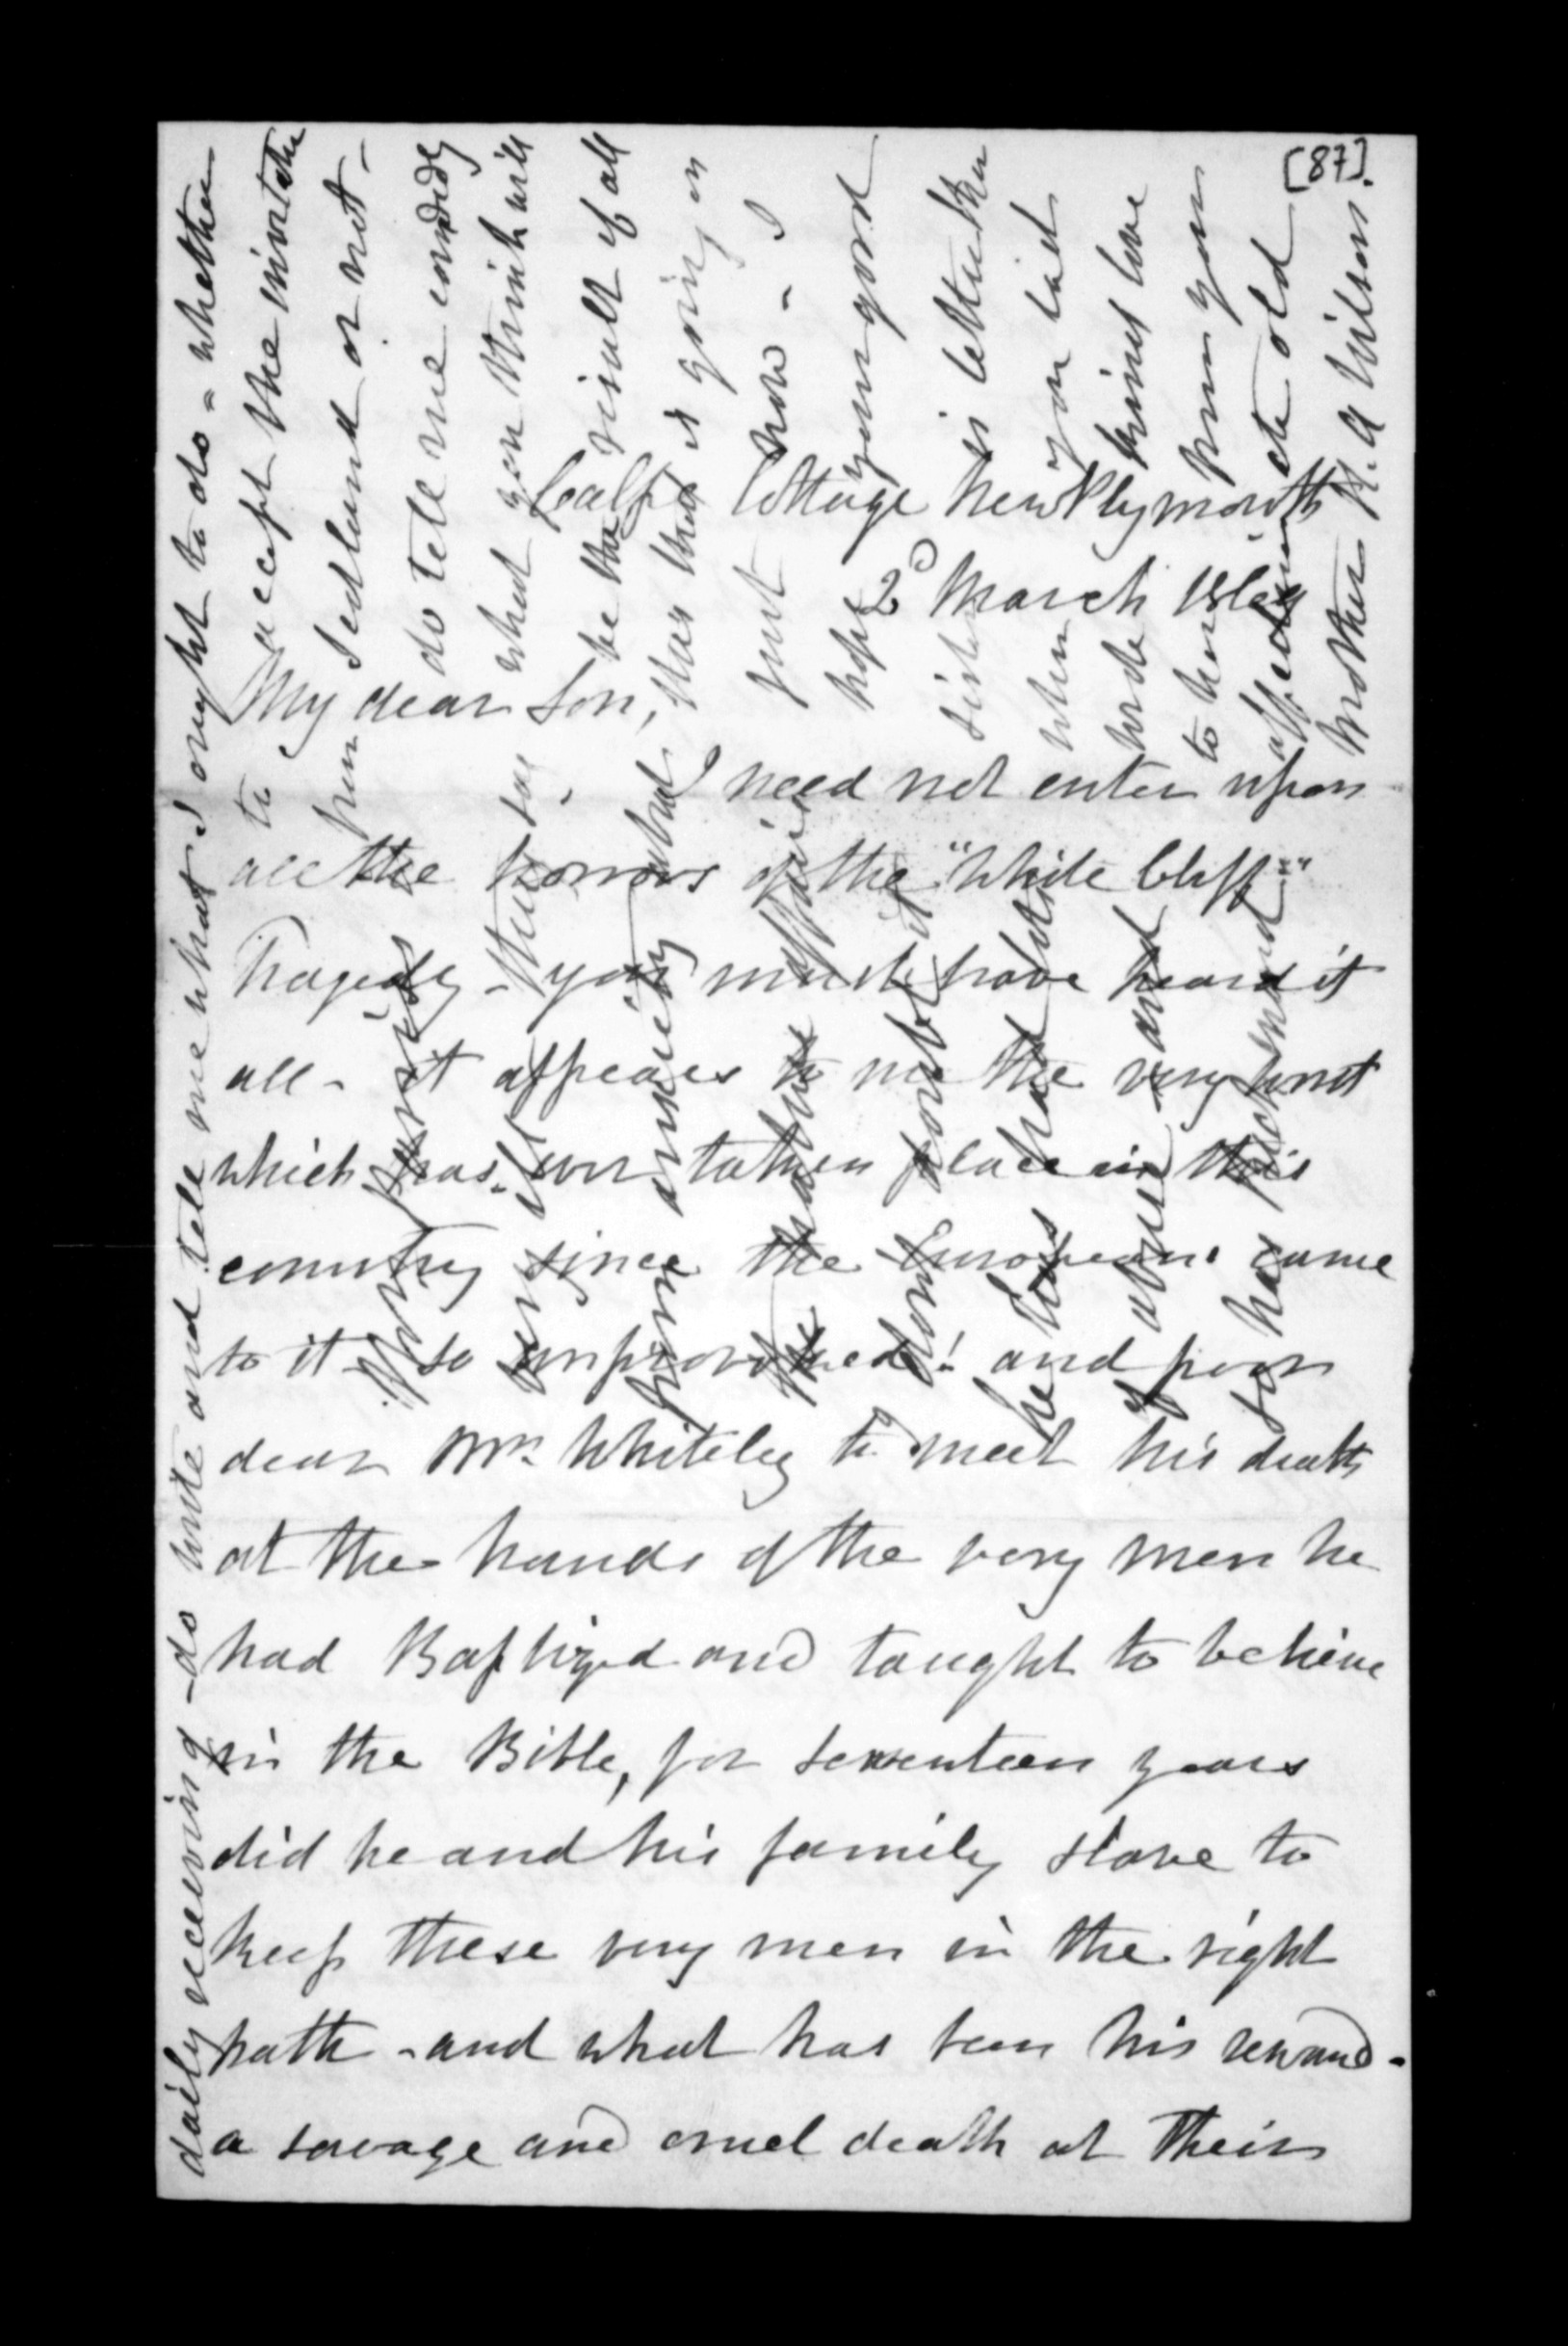 [87].
Calpe Cottage New Plymouth
2d March 1869
My dear Son,
I need not enter upon
all the horrors of the "White Cliff"
Tragedy - you must have heard it
all - it appears to me the very worst
which has ever taken place in this
country since the Europeans came
to it - so unprovoked! and poor
dear Mr. Whiteley to meet his death
at the hands of the very men he
had Baptized and taught to believe
in the Bible, for seventeen years
did he and his family slave to
keep these very men in the right
path - and what has been his reward -
a savage and cruel death at their
daily receiving - do write and tell me what I ought to do - whether
to accept the invitation
from Sedland or not -
do tell me candidly
what you think will
be the result of all
that is going on
just now - I
hope your good
sister is better than
when you last
wrote kindest love
to her from your
affectionate old
Mother K. A Wilson.
the native affairs
he has had
of ague and
so has